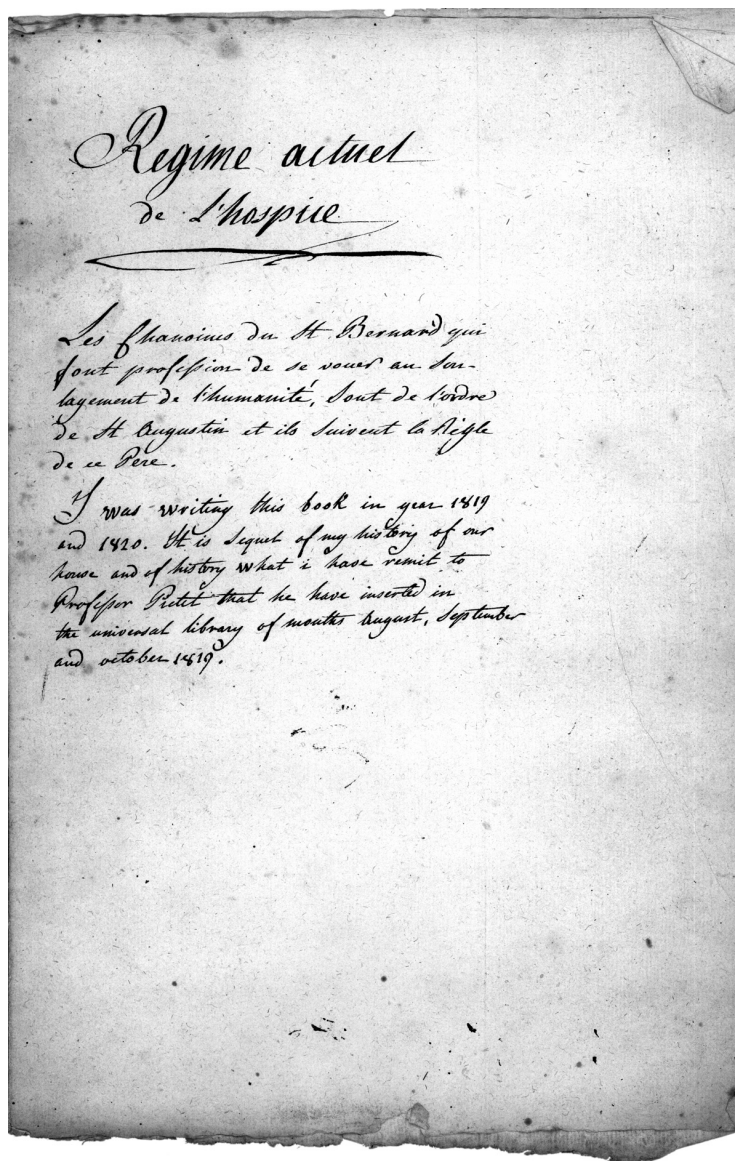 Regime actuel
de L'hospice
Les Chanoines du St Bernard qui
font profession de se vouer au sou-
lagement de l'humanité, sont de l'ordre
de St Augustin et ils suivent la Règle
de ce Pere.
I was writing this book in year 1819
and 1820. It is sequel of my history of our
house and of history what i have remit to
Professor Pictet that he have inserted in
the universal library of months August, September
and october 1819.